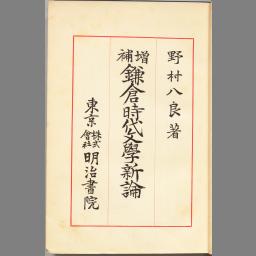 野村八良著
增補 鎌倉時代文學新論
東京 株式會社 明治書院